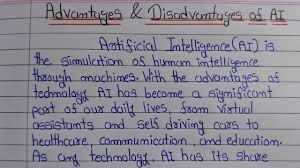 Advantages & Disadvantages of AI
Artificial Intelligence (AI) is
the simulation of human intelligence
through machines. With the advantages of
technology, AI has become a significant
part of our daily lives, from virtual
assistants and self driving cars to
healthcare, communication, and education.
As any technology, AI has its share